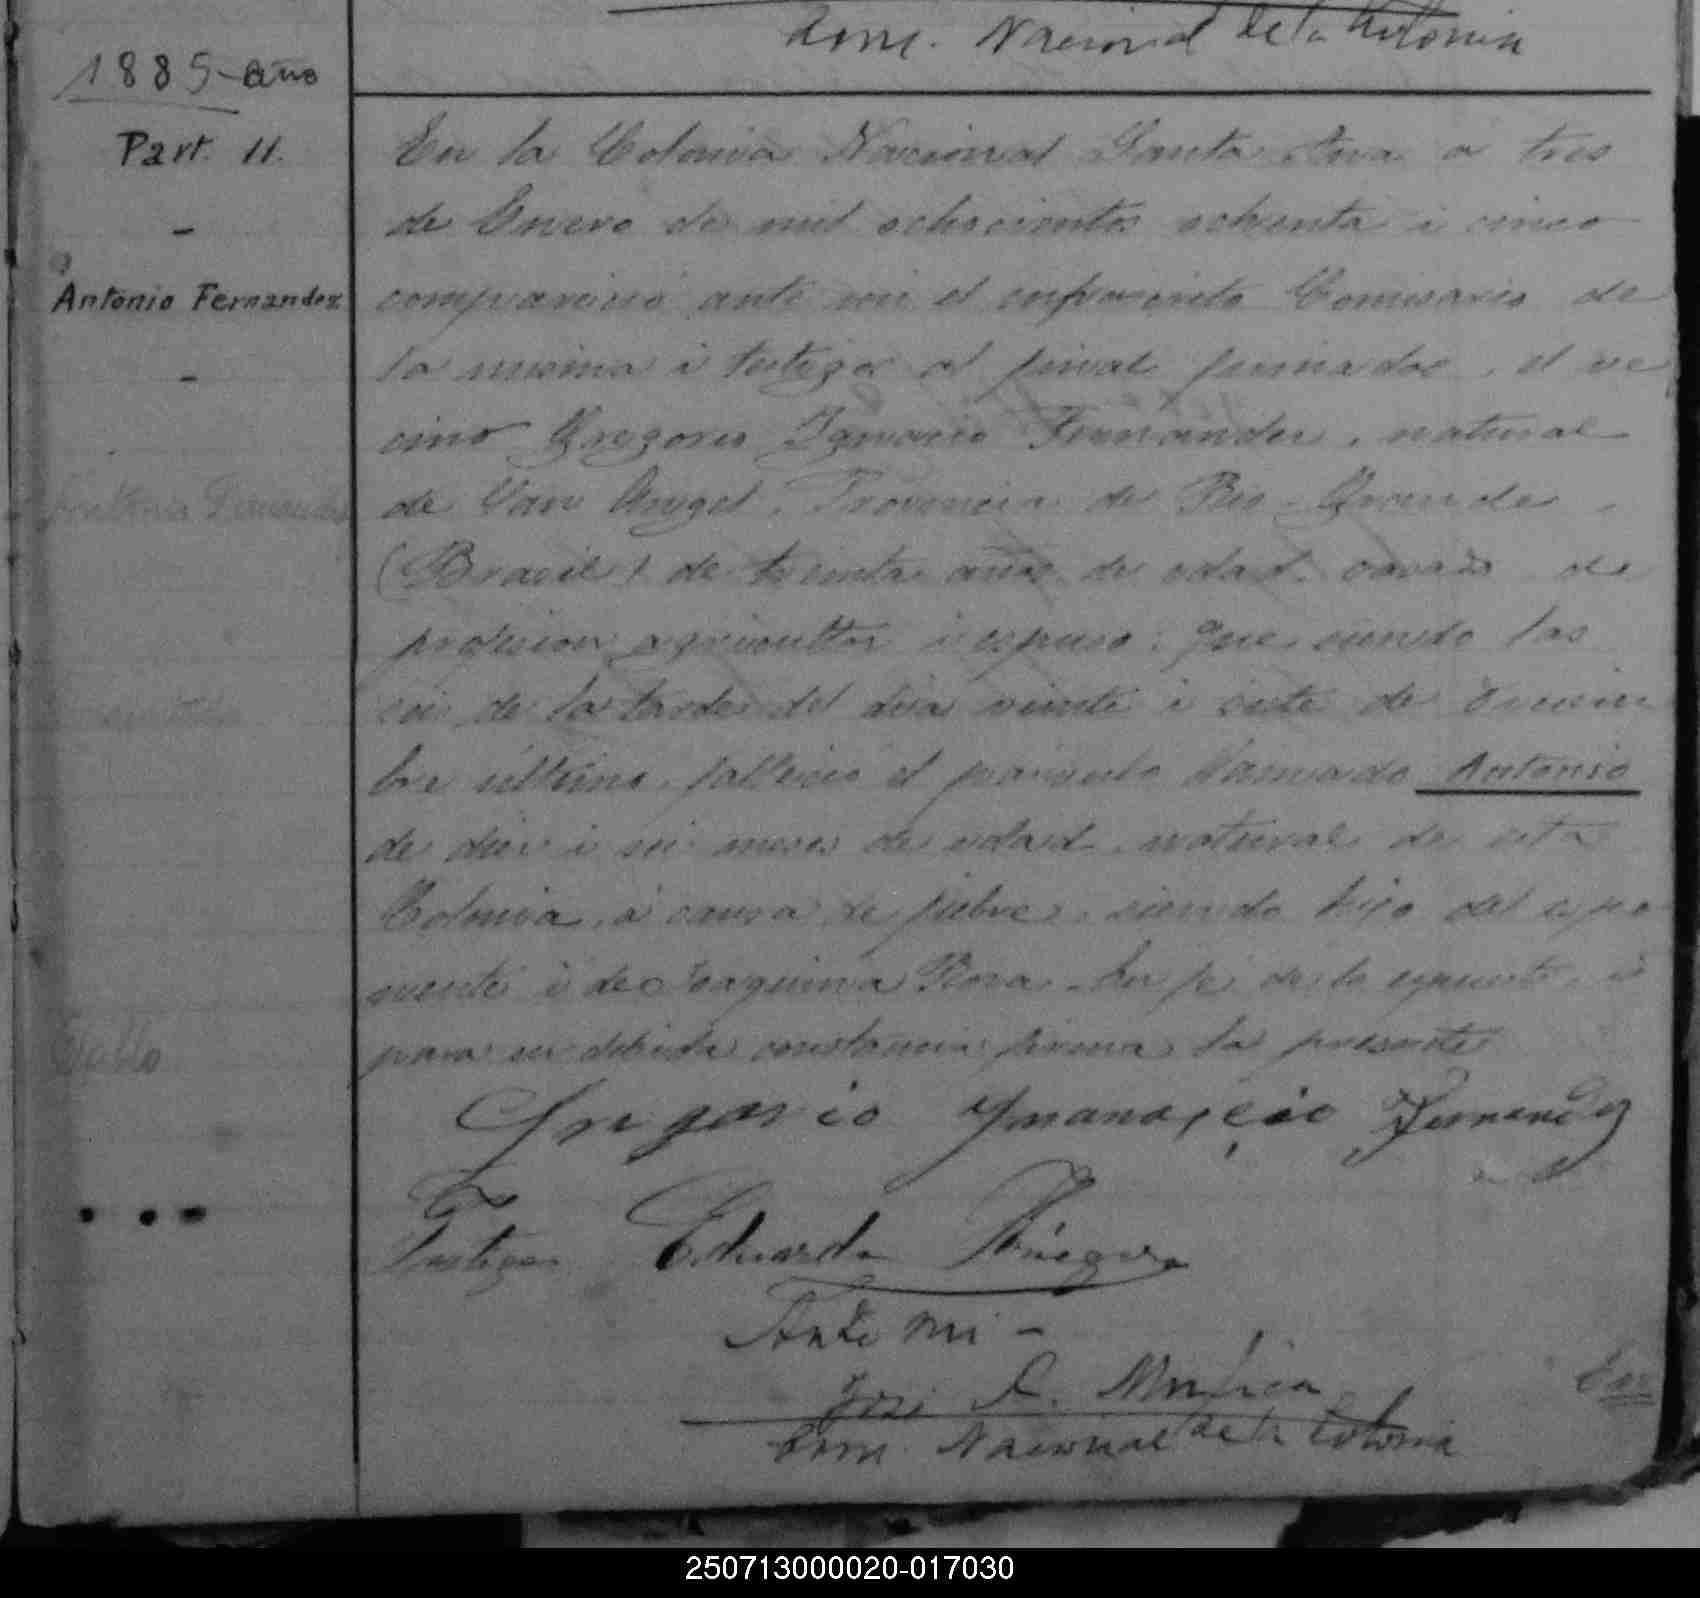 Com. Nacional de la Colonia
1885 - año
Part. 11.
Antonio Fernandez
En la Colonia Nacional Santa Ana a tres
de Enero de mil ochocientos ochenta i cinco
comparecio ante mi el infrascrito Comisario de
la misma i testigos al final firmados, el ve
cino Gregorio Ignacio Fernandez, natural
de San Angel, Provincia de Rio-Grande,
(Brasil) de treinta años de edad, casado de
profesion agricultor i espuso: Que siendo las
seis de la tarde del dia veinte i siete de Diciem
bre último, fallecio el parvulo llamado Antonio
de diez i seis meses de edad, natural de esta
Colonia, a causa de fiebre, siendo hijo del espo
nente i de Joaquina Rosa. En fe de lo espuesto, i
para su debida constancia firma la presente
Gregorio Fernandez
Testigos Eduardo
Ante mi -
José A.
Com. Nacional de la Colonia
En
Pablo
250713000020-017030